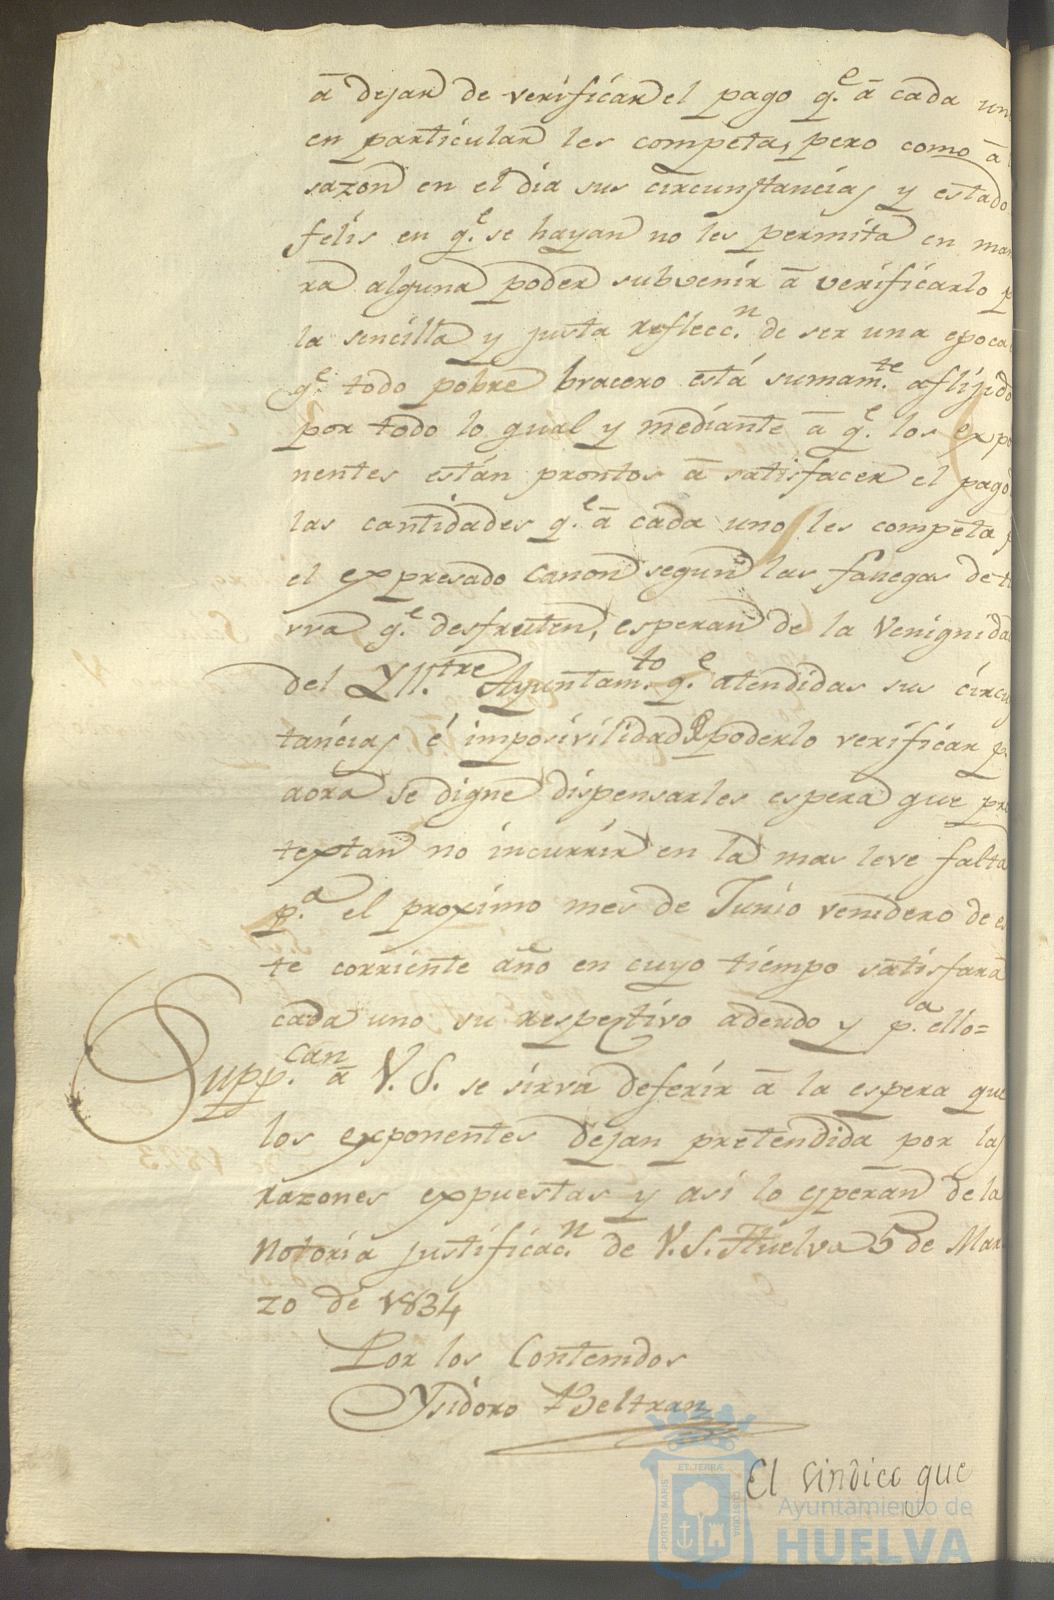 á dejar de verificar el pago q.e á cada un
en particular les competa, pero como á
sazon en el dia sus circunstancias y estado
felis en q.e se hayan no les permita en man
ra alguna poder subvenir á verificarlo p
la sencilla y justa reflecc.n de ser una epoca
q.e todo pobre bracero está sumam.te aflijido
por todo lo qual y mediante á q.e los expo
nentes están prontos á satisfacer el pago
las cantidades q.e á cada uno les competa p
el expresado canon segun las fanegas de ti
rra q.e desfruten, esperan de la Venignida
del Yll.tre Ayuntam.to q.e atendidas sus circu
tancias é imposivilidad poderlo verificar p
aora se digne dispensarles espera que pro
textan no incurrir en la mas leve falta
p.a el proximo mes de Junio venidero de es
te corriente año en cuyo tiempo satisfará
cada uno su respectivo adeudo y p.a ello=
Supp.can á V. S. se sirva deferir á la espera que
los exponentes dejan pretendida por las
razones expuestas y asi lo esperan de la
Notoria justificac.n de V. S. Huelva 5 de Mar
zo de 1834
Por los Contenidos
Ysidoro Beltran
El sindico que
PORTUS MARIS
ET TERRÆ
CUSTODIA
Ayuntamiento de
HUELVA